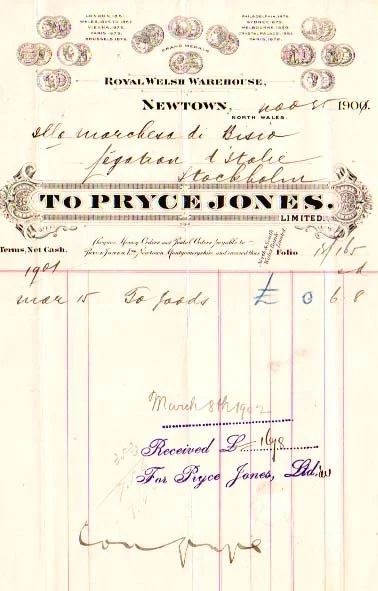 LONDON, 1851.
WALES, 1865 TO 1883
VIENNA, 1873.
PARIS, 1878.
BRUSSELS, 1876.
PHILADELPHIA, 1876.
SYDNEY, 1879.
MELBOURNE, 1880
CRYSTAL PALACE, 1881.
PARIS, 1878.
GRAND MEDALS
ROYAL WELSH WAREHOUSE,
NEWTOWN,
NORTH WALES.
190
alla marchesa di Bisio
légation d'Italie
Stockholm
TO PRYCE JONES.
LIMITED.
Terms, Net Cash.
Cheques, Money Orders and Postal Orders payable to—
Pryce Jones Ltd. Newtown, Montgomeryshire and crossed thus
North & South Wales Bank Limited
Folio
1901
mar 15 To goods £ 0 6 8
March 8th 1902
Received £
For Pryce Jones, Ltd.